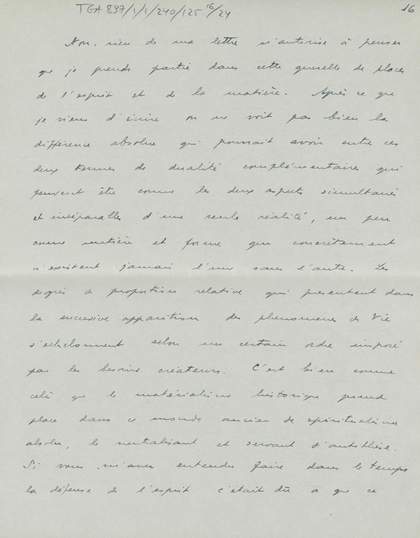 TGA 897/1/1/240/125 16/24
16
Non, rien de ma lettre n'autorise à penser
que je prends partie dans cette querelle de places
de l'esprit et de la matière. Après ce que
je viens d'écrire on ne voit pas bien la
différence absolue qui pourrait avoir entre ces
deux termes de dualité complémentaires qui
peuvent être connus les deux aspects simultanés
et inséparables d'une seule réalité, un peu
comme matière et forme que concrètement
n'existent jamais l'une sans l'autre. Les
degrés de proportion relative qui présentent dans
la successive apparition des phénomènes de Vie
s'échelonnent selon un certain ordre imposé
par les besoins créateurs. C'est bien comme
celà que le matérialisme historique prend
place dans ce monde ancien de spiritualisme
absolu, le neutralisant et servant d'antithèse.
Si vous m'avez entendu faire dans le temps
la défense de l'esprit c'était dû à que ce